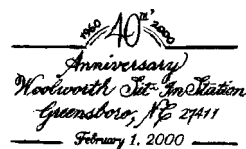 1960 40TH 2000
Anniversary
Woolworth Sit-In Station
Greensboro, NC 27411
February 1, 2000